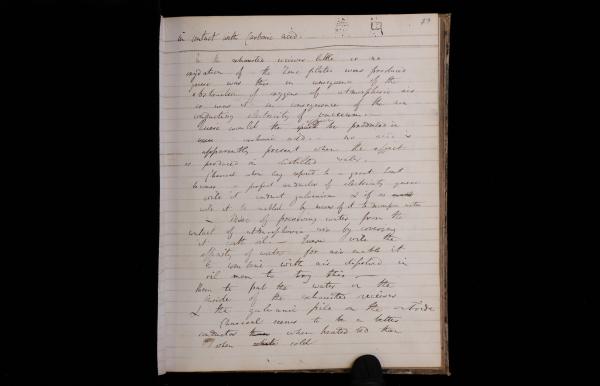 in contact with Carbonic acid.
In the exhausted receiver little or no
oxydation of the Zinc plates was produced
quere was this in consequence of the
abstraction of oxygene of atmospheric air
or was it in consequence of the non
conducting electricity of vacuum
Quere would the be produced in
carbonic acid no acid is
apparently present when the effect
is produced in distilled water.
Charcoal when exposed to a great heat
becomes a perfect conductor of electricity quere
will it conduct galvanism & if so
Mode of preserving water from the
contact of atmospheric air by covering
it with oil. Quere will the
affinity of water for air enable it
to combine with air dissolved in
oil mem to try this
Mem to put the water in the
inside of the exhausted receiver
& the galvanic pile on the outside
Charcoal seems to be a better
conductor when heated red than
when cold